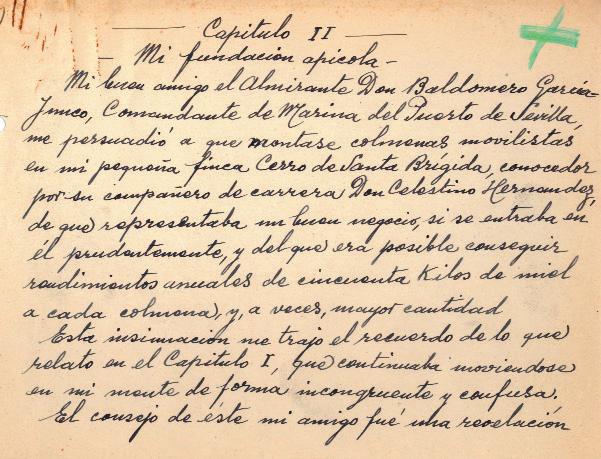 Capitulo II
- Mi fundación apicola -
Mi buen amigo el Almirante Don Baldomero García-
Junco, Comandante de Marina del Puerto de Sevilla,
me persuadió a que montase colmenas movilistas
en mi pequeña finca Cerro de Santa Brígida, conocedor
por su compañero de carrera Don Celestino Hernandez,
de que representaba un buen negocio, si se entraba en
él prudentemente, y del que era posible conseguir
rendimientos anuales de cincuenta Kilos de miel
a cada colmena, y, a veces, mayor cantidad
Esta insinuación me trajo el recuerdo de lo que
relato en el Capitulo I, que continuaba moviendose
en mi mente de forma incongruente y confusa.
El consejo de este mi amigo fué una revelación